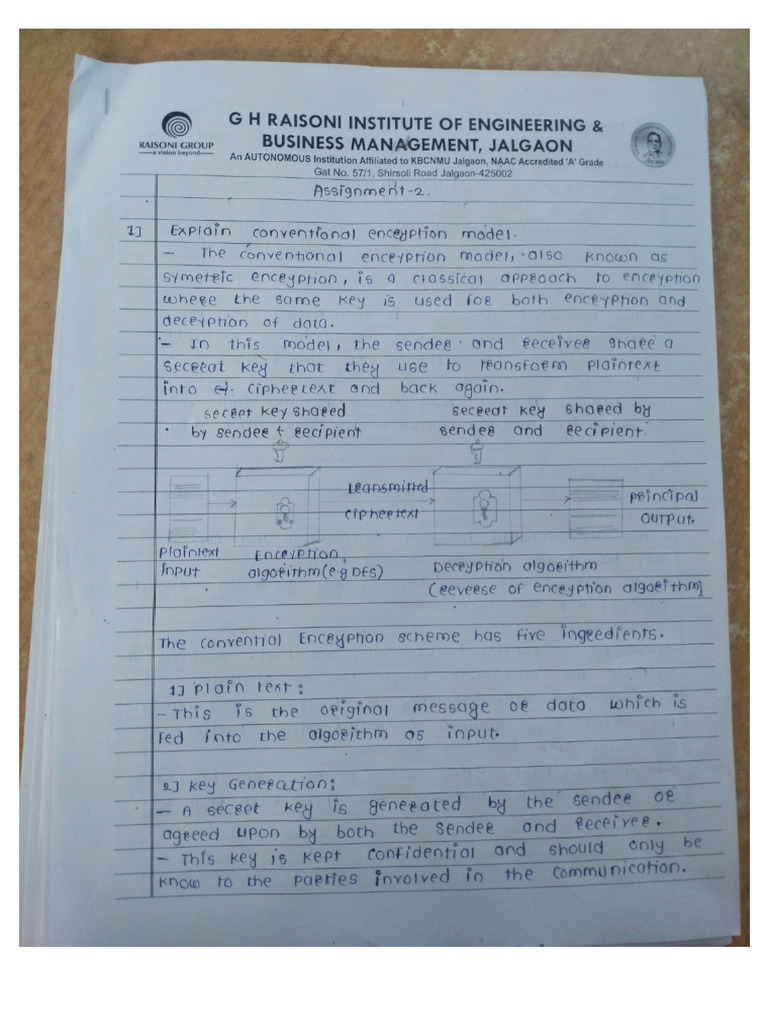 G H RAISONI INSTITUTE OF ENGINEERING &
BUSINESS MANAGEMENT, JALGAON
RAISONI GROUP
a vision beyond
An AUTONOMOUS Institution Affiliated to KBCNMU Jalgaon, NAAC Accredited 'A' Grade
Gat No. 57/1, Shirsoli Road Jalgaon-425002
Assignment-2.
1] Explain conventional encryption model.
- The conventional encryption model, also known as
symetric encryption, is a classical approach to encryption
where the same key is used for both encryption and
decryption of data.
- In this model, the sender and receiver share a
secreat key that they use to transform plaintext
into ciphertext and back again.
secret key shared
by sender & recipient
secreat key shared by
sender and recipient.
transmitted
ciphertext
principal
output.
Plaintext
input
Encryption
algorithm(e.g DES)
Decryption algorithm
(reverse of encryption algorithm]
The convential Encryption scheme has five ingredients.
1] Plain text:
- This is the original message or data which is
fed into the algorithm as input.
2] Key Generation:
- A secret key is generated by the sender or
agreed upon by both the sender and receiver.
- This key is kept confidential and should only be
know to the parties involved in the communication.